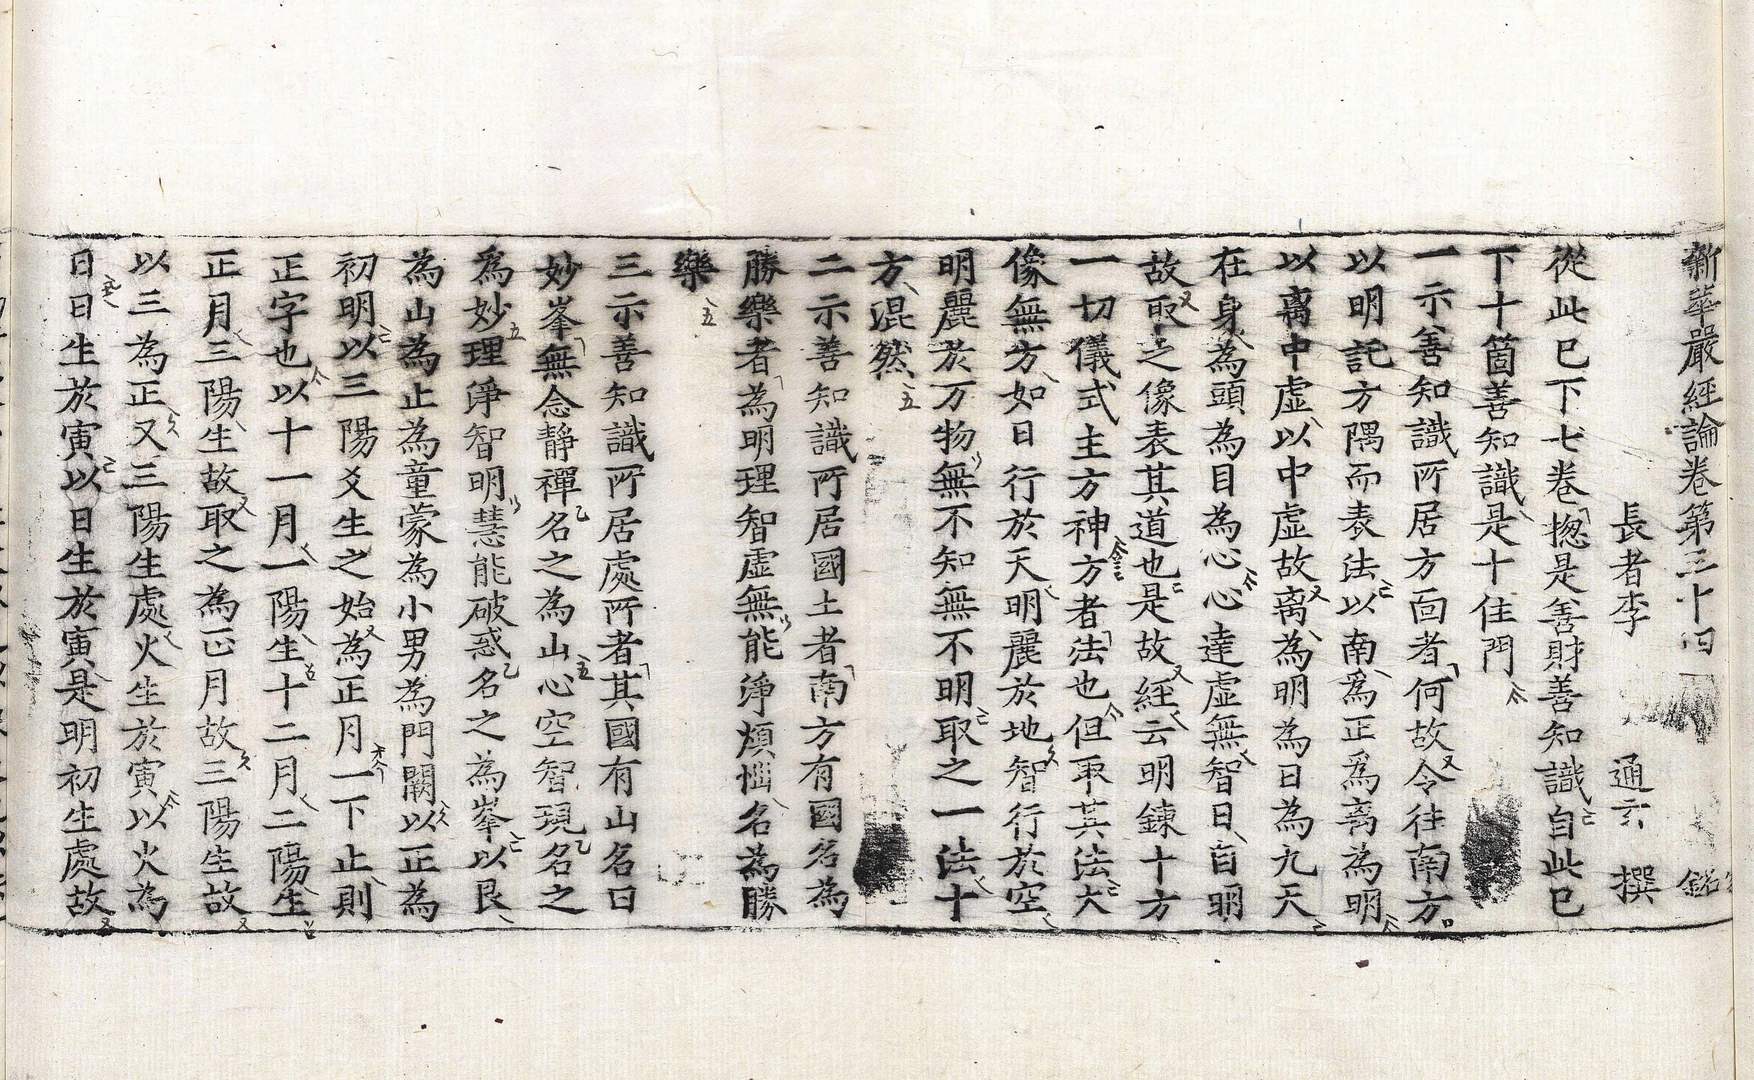 新華嚴經論卷第三十四 銘
長者李 通玄 撰
從此已下七卷揔是善財善知識自此已
下十箇善知識是十住門
一示善知識所居方面者何故令往南方
以明託方隅而表法以南爲正爲离為明
以离中虛以中虛故离為明為日為九天
在身為頭為目為心心達虛無智日自明
故取之像表其道也是故經云明錬十方
一切儀式主方神方者法也但取其法大
像無方如日行於天明麗於地智行於空
明麗於万物無不知無不明取之一法十
方混然
二示善知識所居國土者南方有國名為
勝樂者為明理智虛無能淨煩惱名為勝
樂
三示善知識所居處所者其國有山名曰
妙峯無念靜禪名之為山心空智現名之
爲妙理淨智明慧能破惑名之為峯以艮
為山為止為童蒙為小男為門闕以正為
初明以三陽爻生之始為正月一下止則
正字也以十一月一陽生十二月二陽生
正月三陽生故取之為正月故三陽生故
以三為正又三陽生處火生於寅以火為
日日生於寅以日生於寅是明初生處故